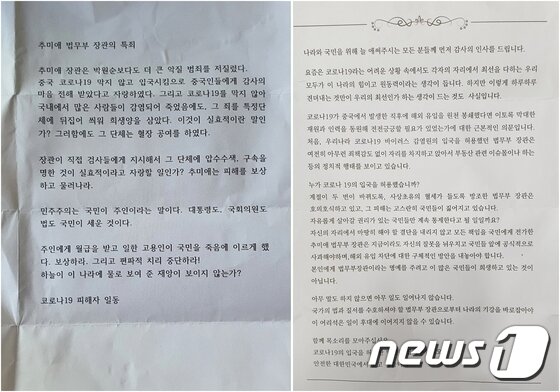 추미애 법무부 장관의 특죄
추미애 장관은 박원순보다도 더 큰 악질 범죄를 저질렀다.
중국 코로나19 막지 않고 입국시킴으로 중국인들에게 감사의
마음 전해 받았다고 자랑하였다. 그리고 코로나19를 막지 않아
국내에서 많은 사람들이 감염되어 죽었음에도, 그 죄를 특정단
체에 뒤집어 씌워 희생양을 삼았다. 이것이 실효적이란 말인
가? 그러함에도 그 단체는 혈장 공여를 하였다.
장관이 직접 검사들에게 지시해서 그 단체에 압수수색, 구속을
명한 것이 실효적이라고 자랑할 일인가? 추미애는 피해를 보상
하고 물러나라.
민주주의는 국민이 주인이라는 말이다. 대통령도, 국회의원도
법도 국민이 세운 것이다.
주인에게 월급을 받고 일한 고용인이 국민을 죽음에 이르게 했
다. 보상하라. 그리고 편파적 치리 중단하라!
하늘이 이 나라에 물로 보여 준 재앙이 보이지 않는가?
코로나19 피해자 일동
나라와 국민을 위해 늘 애써주시는 모든 분들께 먼저 감사의 인사를 드립니다.
요즘은 코로나19라는 어려운 상황 속에서도 각자의 자리에서 최선을 다하는 우리
모두가 이 나라의 힘이고 원동력이라는 생각이 듭니다. 하지만 이렇게 하루하루
견뎌내는 것만이 우리의 최선인가 하는 생각이 드는 것도 사실입니다.
코로나19가 중국에서 발생한 직후에 해외 유입을 원천 봉쇄했다면 이토록 막대한
재원과 인력을 동원해 전전긍긍할 필요가 있었는가에 대한 근본적인 의문입니다.
처음, 우리나라 코로나19 바이러스 감염원의 입국을 허용했던 법무부 장관은
여전히 아무런 죄책감도 없이 자리를 차지하고 앉아서 부동산 관련 이슈몰이나 하는
등의 정치적 행태를 보이고 있습니다.
누가 코로나 19의 입국을 허용했습니까?
계절이 두 번이 바뀌도록, 사상초유의 월세가 들도록 방조한 법무부 장관은
호의호식하고 있고, 그 피해는 고스란히 국민들이 짊어지고 있습니다.
자유롭게 살아갈 권리가 있는 국민들만 계속 통제한다고 될 일일까요?
자신의 자리에서 마땅히 해야 할 결단을 내리지 않고 모든 책임을 국민에게 전가한
추미애 법무부 장관은 지금이라도 자신의 잘못을 뉘우치고 국민들 앞에 공식적으로
사과해야하며, 해외 유입 차단에 대한 구체적인 방안을 내놓아야 합니다.
본인에게 법무부장관이라는 명예를 주려고 이 많은 국민들이 희생하고 있는 것이
아닙니다.
아무 말도 하지 않으면 아무 일도 일어나지 않습니다.
국가의 법과 질서를 수호하셔야 할 법무부 장관으로부터 나라의 기강을 바로잡아야
이 어리석은 일이 후대에 이어지지 않을 수 있습니다.
함께 목소리를 모아주십시오.
코로나19의 입국을
안전한 대한민국에서
news1